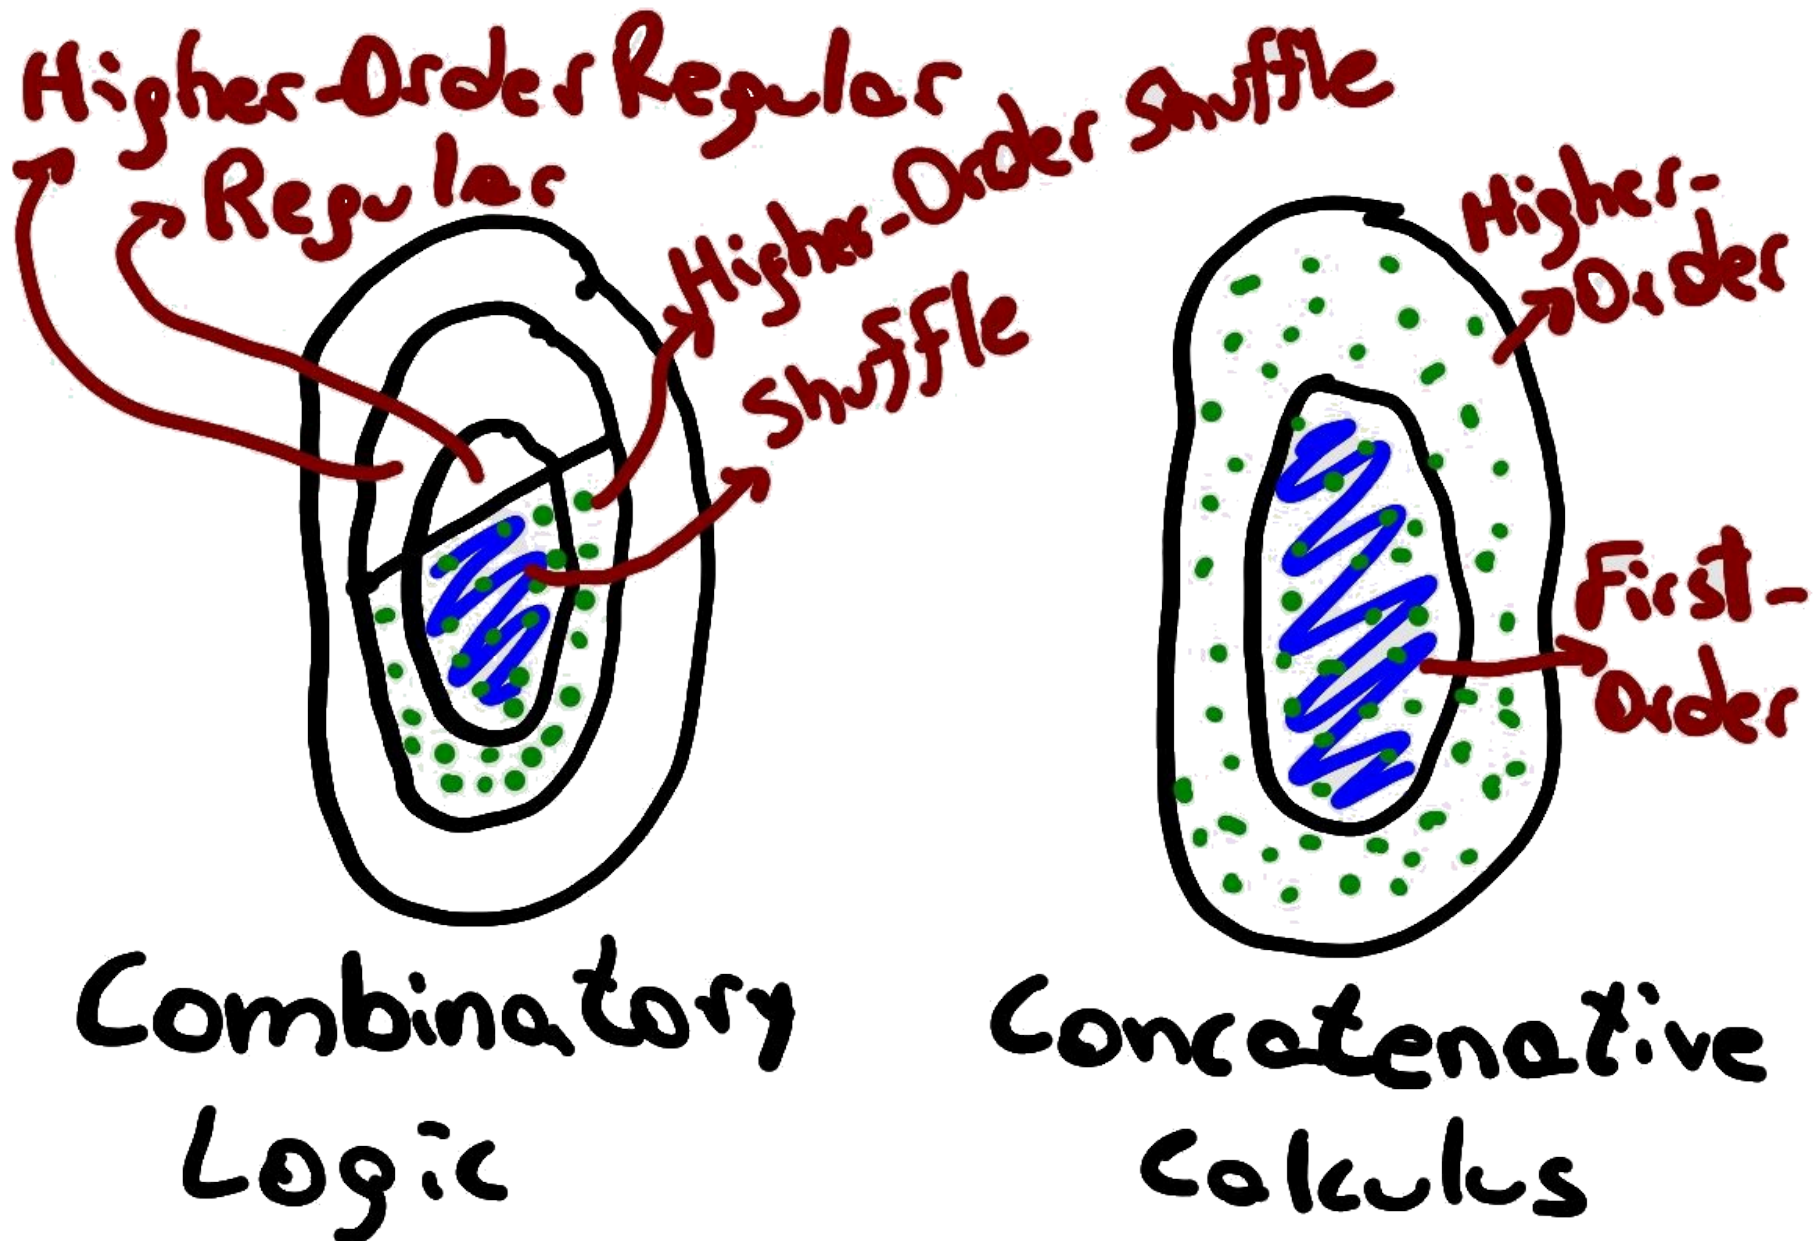 Higher-Order Regular
Regular
Higher-Order Shuffle
Shuffle
Higher-
Order
First-
Order
Combinatory
Logic
Concatenative
Calculus